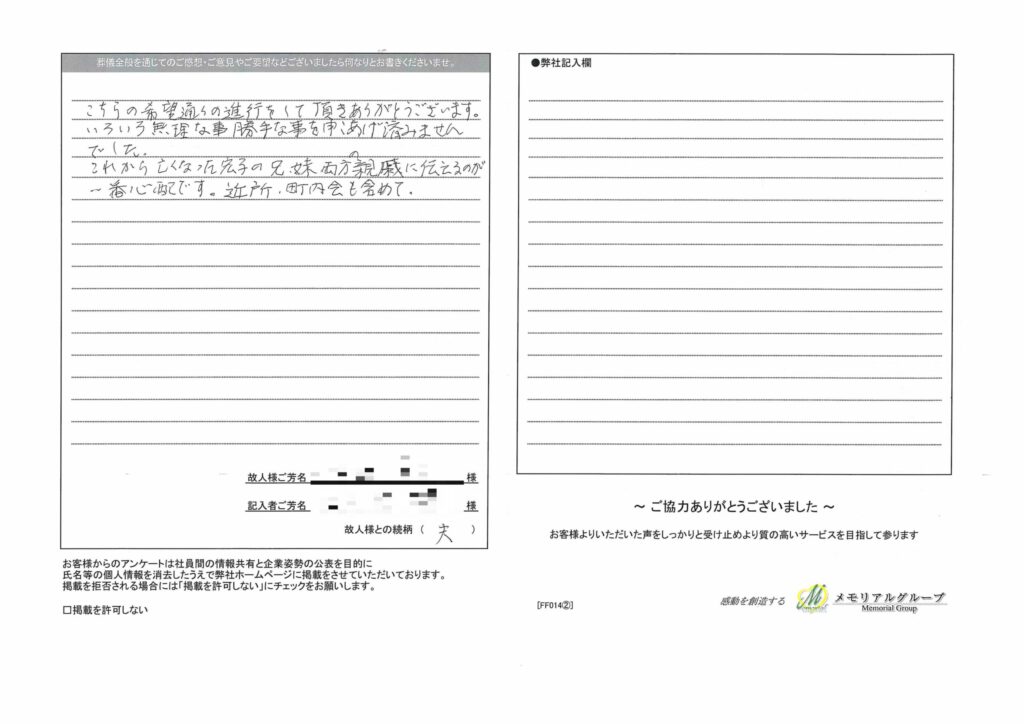 葬儀全般を通じてのご感想・ご意見やご要望などございましたら何なりとお書きくださいませ。
こちらの希望通りの進行をして頂きありがとうございます。
いろいろ無理な事勝手な事を申しあげ済みません
でした。
これから亡くなった宏子の兄、妹両方の親戚に伝えるのが
一番心配です。近所、町内会も含めて、
故人様ご芳名 様
記入者ご芳名 様
故人様との続柄 ( 夫 )
お客様からのアンケートは社員間の情報共有と企業姿勢の公表を目的に
氏名等の個人情報を消去したうえで弊社ホームページに掲載をさせていただいております。
掲載を拒否される場合には「掲載を許可しない」にチェックをお願いします。
□掲載を許可しない
●弊社記入欄
～ ご協力ありがとうございました ～
お客様よりいただいた声をしっかりと受け止めより質の高いサービスを目指して参ります
[FF014②]
感動を創造する
メモリアルグループ
Memorial Group